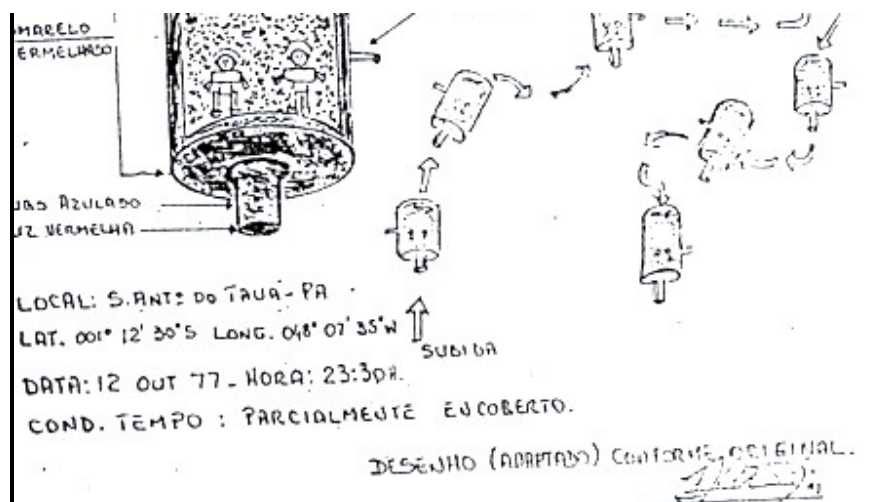 MARELO
ERMELHADO
AZULADO
UZ VERMELHA
LOCAL: S. ANTº DO TAUÁ - PA
LAT. 001° 12' 30"S LONG. 048° 07' 35"W
SUBIDA
DATA: 12 OUT 77 - HORA: 23:30H.
COND. TEMPO : PARCIALMENTE ENCOBERTO.
DESENHO (ADAPTADO) CONFORME ORIGINAL.